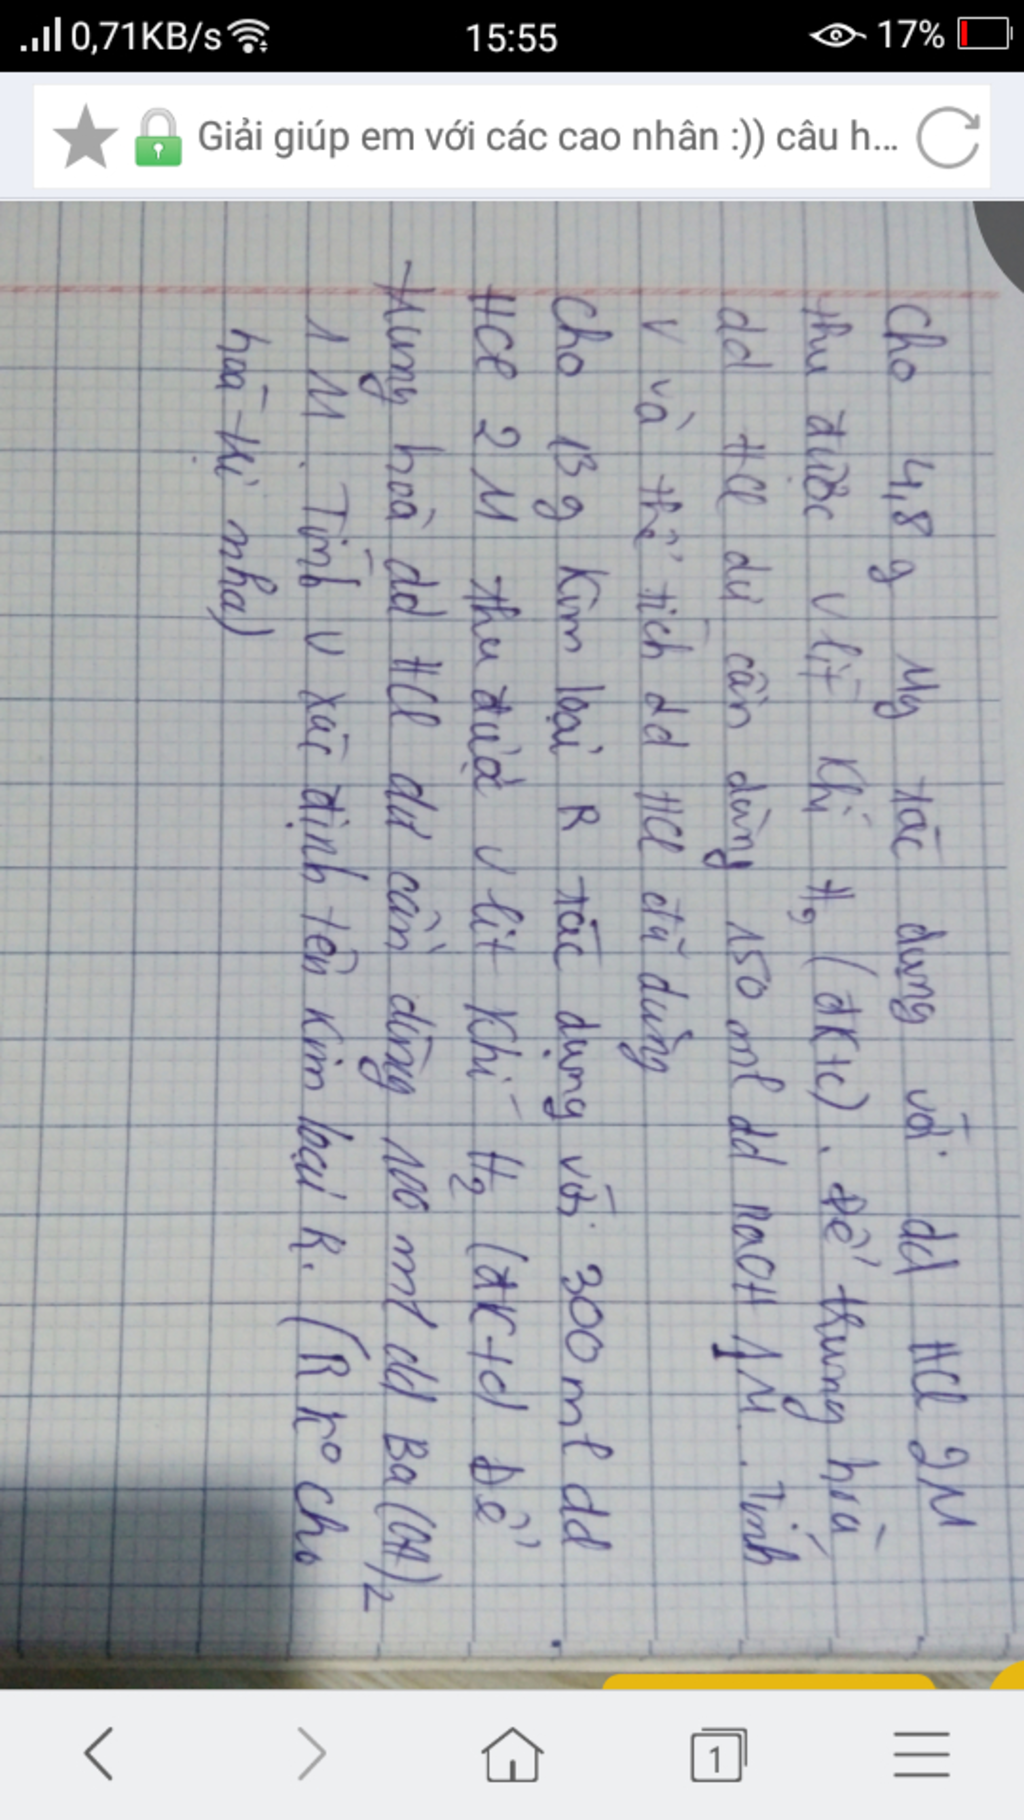 0,71KB/s
15:55
17%
Giải giúp em với các cao nhân :)) câu h...
Cho 4,8 g Mg tác dụng với dd HCl 2M
thu được V lít khí H2 (đktc). Để trung hoà
dd HCl dư cần dùng 150 ml dd NaOH 1M. Tính
V và thể tích dd HCl đã dùng
Cho 13g kim loại R tác dụng với 300ml dd
HCl 2M thu được V lít khí H2 (đktc) Để
trung hoà dd HCl dư cần dùng 100 ml dd Ba(OH)2
1M. Tính V xác định tên kim loại R. (R ko cho
hoá trị nha)
1